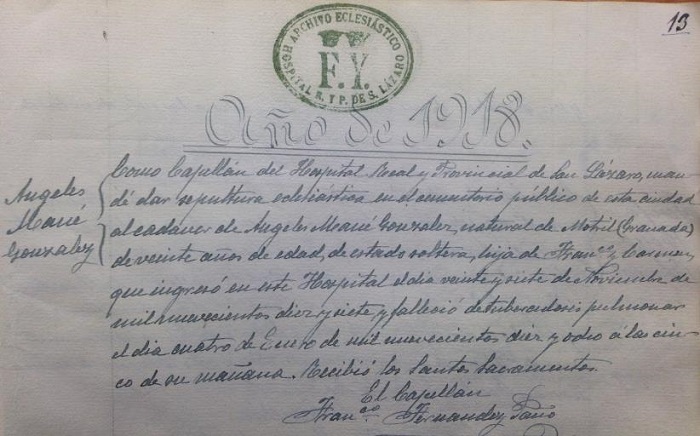 13
ARCHIVO ECLESIÁSTICO
F. Y.
HOSPITAL R. Y P. DE S. LÁZARO
Año de 1918.
Angeles
Mané
Gonzalez
Como Capellán del Hospital Real y Provincial de San Lázaro, man-
dé dar sepultura eclesiástica en el cementerio público de esta ciudad
al cadáver de Angeles Mané Gonzalez, natural de Motril (Granada)
de veinte años de edad, de estado soltera, hija de Franco y Carmen,
que ingresó en este Hospital el dia veinte y siete de Noviembre de
mil nuevecientos diez y siete y falleció de tuberculosis pulmonar
el dia cuatro de Enero de mil nuevecientos diez y ocho á la cin-
co de su mañana. Recibió los Santos Sacramentos.
El Capellán
Franco. Fernandez